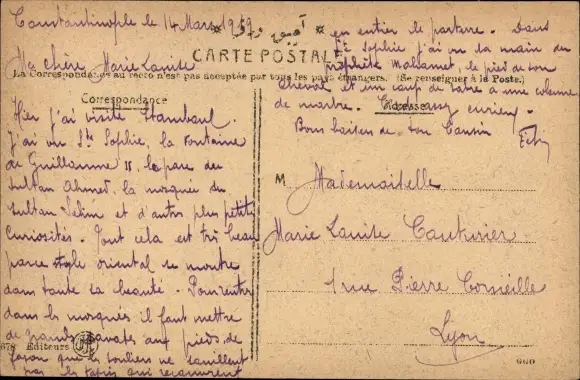 Constantinople le 14 Mars 1919
Ma chère Marie Louise
CARTE POSTALE
La Correspondance au recto n'est pas acceptée par tous les pays étrangers. (Se renseigner à la Poste.)
Correspondance
Hier j'ai visité Stamboul.
J'ai vu Ste Sophie, la Fontaine
de Guillaume II, le parc du
Sultan Ahmed, la mosquée du
Sultan Sélim et d'autres plus petites
curiosités. Tout cela est très beau
parce style oriental se montre
dans toute sa beauté. Pour entrer
dans les mosquées il faut mettre
de grandes savates aux pieds de
façon que les souliers ne souillent
pas les tapis qui recouvrent
en entier le parterre. Dans
Ste Sophie j'ai vu la main du
prophète Mahomet, le pied de son
cheval et un coup de sabre à une colonne
de marbre. C'est assez curieux.
Bons baisers de ton Cousin
Adresse
M Mademoiselle
Marie Louise Couturier
1 rue Pierre Corneille
Lyon
Editeurs